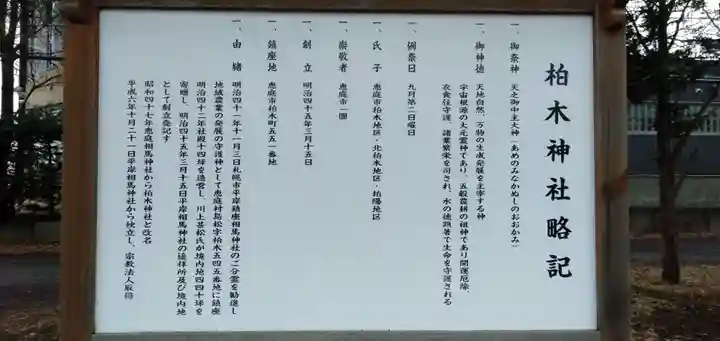 柏木神社略記
一、御祭神 天之御中主大神(あめのみなかぬしのおおかみ)
一、御神徳 天地自然、万物の生成発展を主宰する神
宇宙根源の大元霊神であり、五穀農耕の祖神であり開運厄除、
衣食住守護、諸業繁栄を司され、水の徳顕著で生命を守護される
一、例祭日 九月第二日曜日
一、氏子 恵庭市柏木地区・北柏木地区・柏陽地区
一、崇敬者 恵庭市一圓
一、創立 明治四十五年三月十五日
一、鎮座地 恵庭市柏木町五五一番地
一、由緒 明治四十一年十一月三日札幌市平岸鎮座相馬神社のご分霊を勧遷し
地域農業の発展の守護神として恵庭村島松字柏木五四五番地に鎮座
明治四十二年社殿十四坪を造営し、川上甚松氏が境内地四四十坪を
寄贈し、明治四十五年三月十五日平岸相馬神社の遥拝所及び境内地
として創立登記す
昭和四十七年恵庭相馬神社から柏木神社と改名
平成六年十月二十一日平岸相馬神社から独立し、宗教法人取得